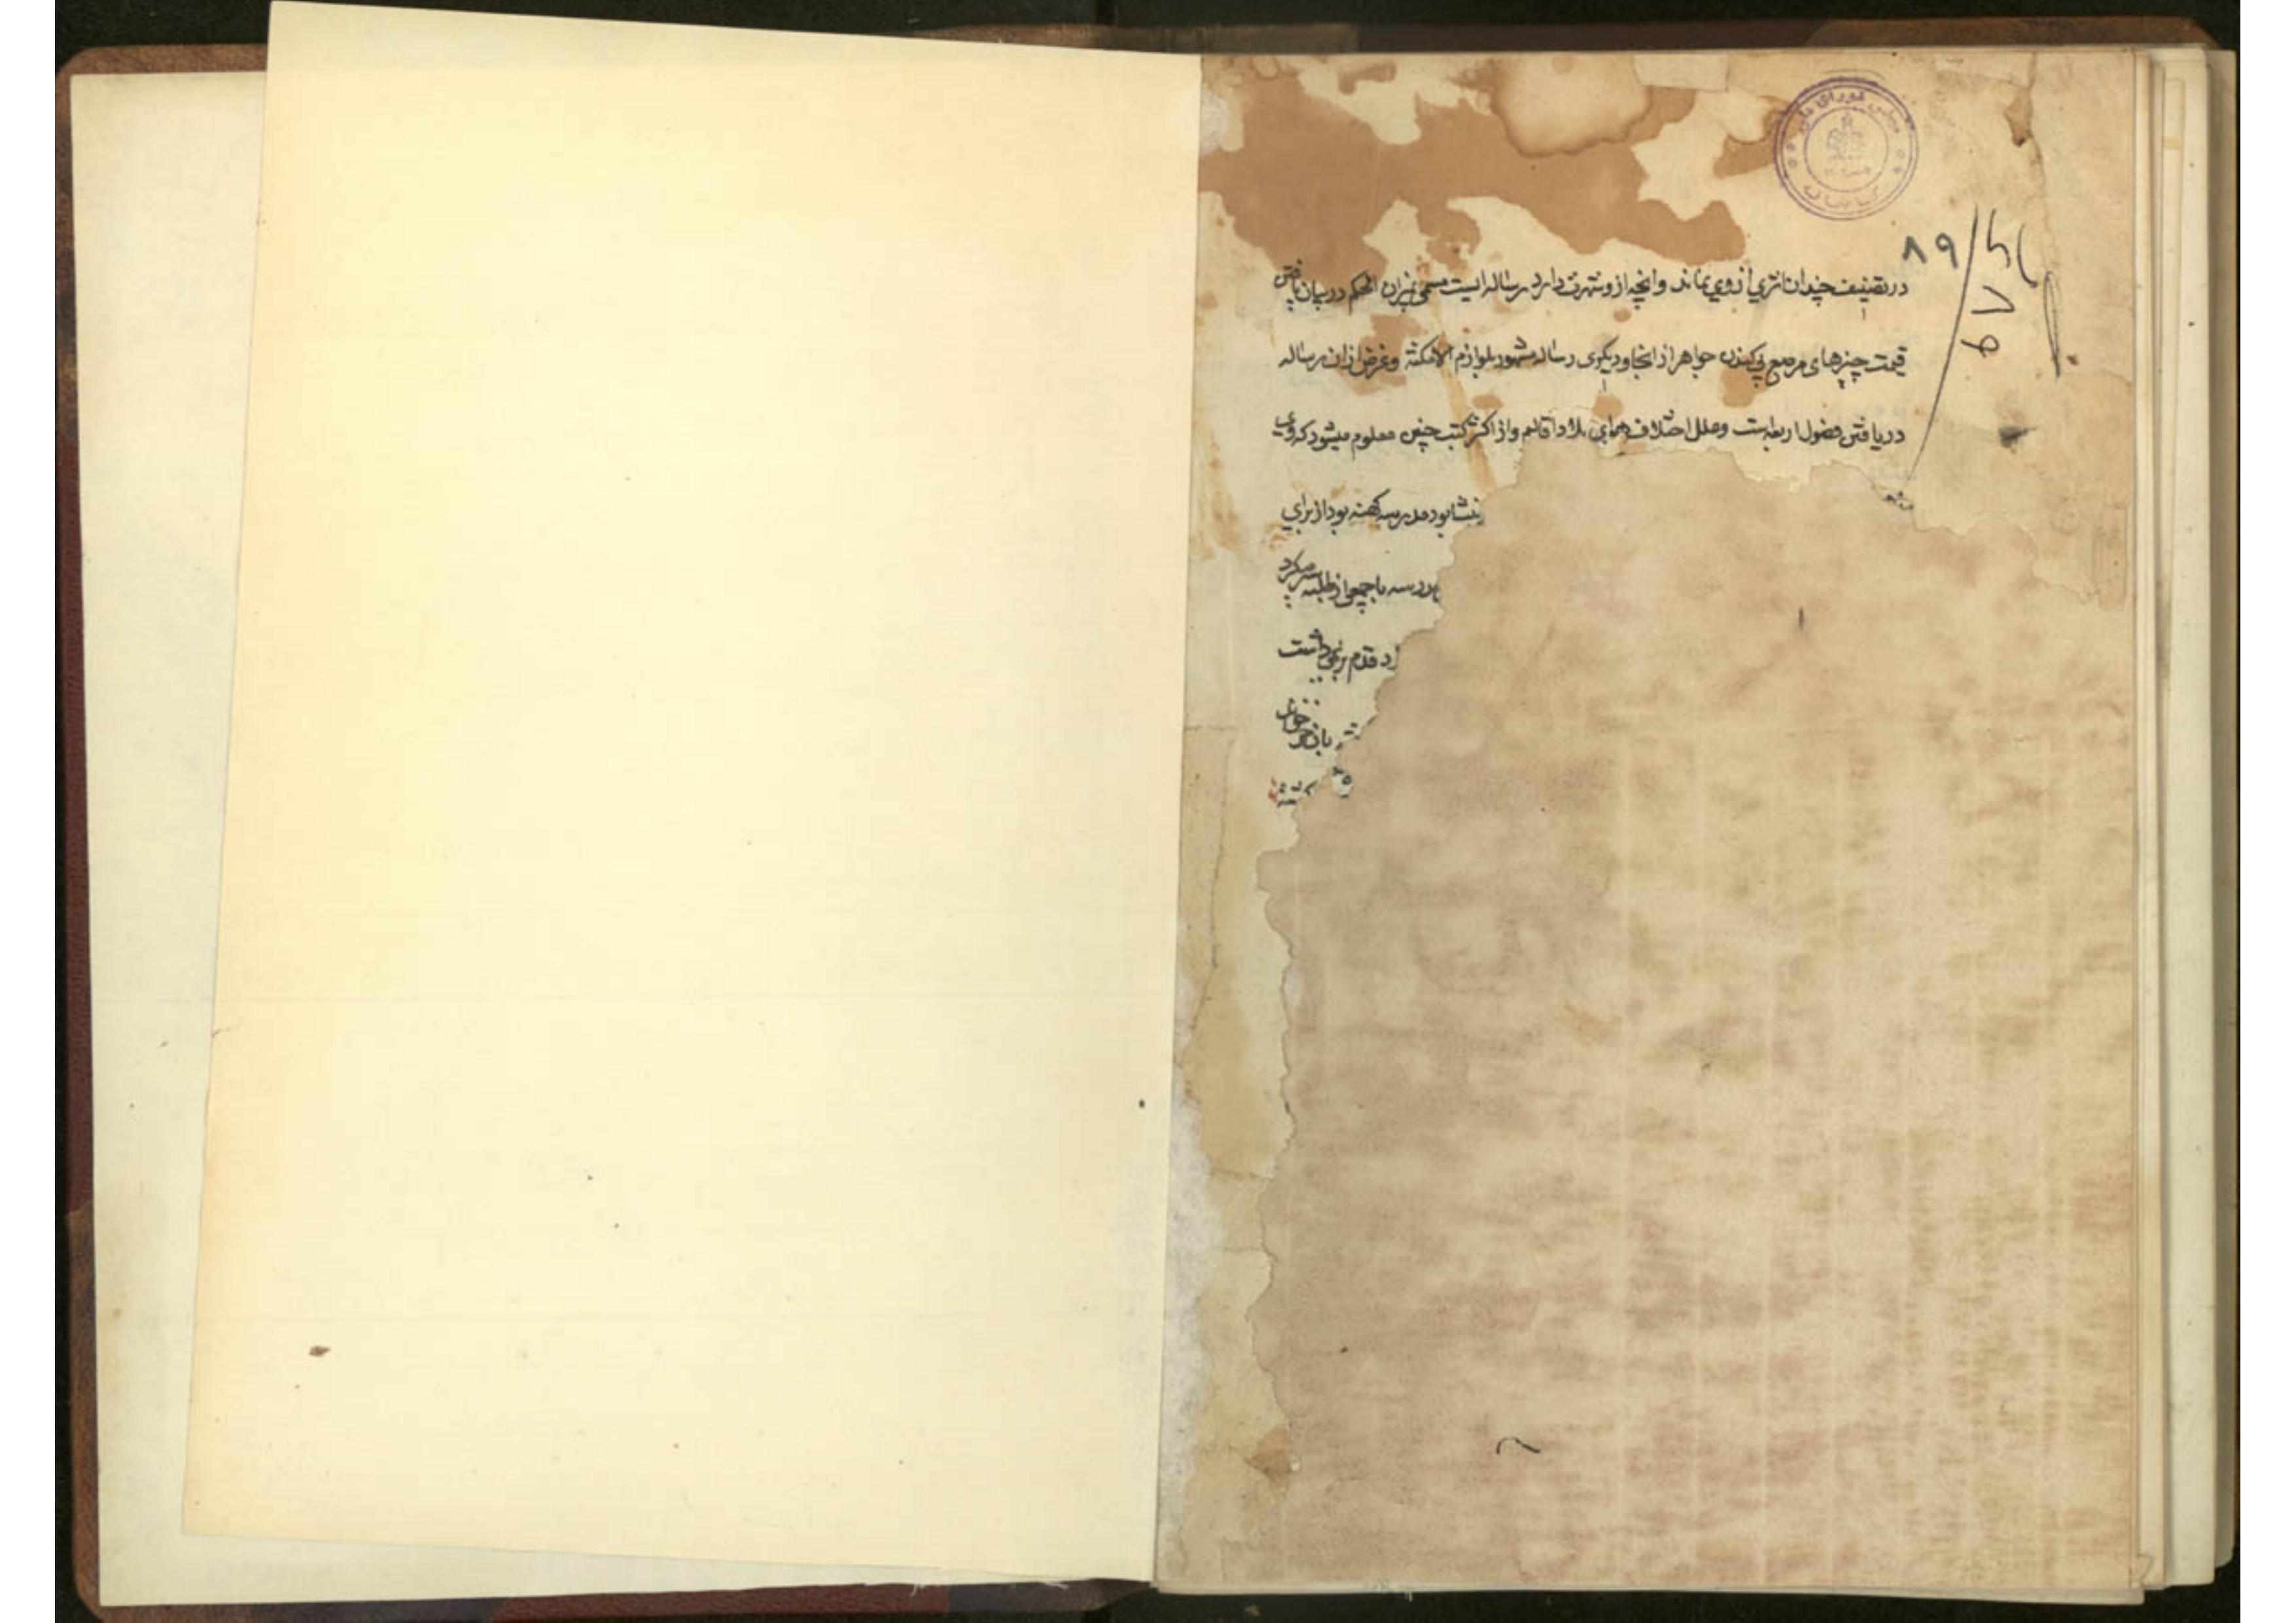 مجلس شورای ملی
کتابخانه
۸۹
در تصنیف چندان اثری از وی نماند و آنچه از و شهرت دارد رساله ایست مسمی بمیزان الحکم در بیان یافتن
قیمت چیزهای مرصع بی کندن جواهر از انجا و دیگری رساله مشهور بلوازم الامکنة و غرض ازان رساله
دریافتن فصول اربعه است و علل اختلاف هوای بلاد و اقالیم و از اکثر کتب چنین معلوم میشود که وی
نیشابور مدرسه کهنه بود از برای
مدرسه با جمعی از طلبه سر میکرد
قدم بر نمی داشت
باز